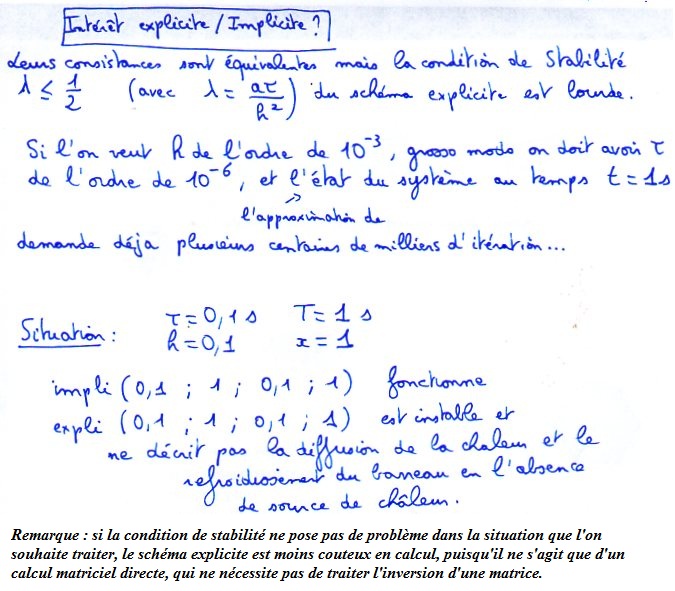 Intérêt explicite / Implicite ?
Leurs consistances sont équivalentes mais la condition de stabilité
λ ≤ 1/2 (avec λ = aτ/h²) du schéma explicite est lourde.
Si l'on veut h de l'ordre de 10⁻³, grosso modo on doit avoir τ
de l'ordre de 10⁻⁶, et l'état du système au temps t = 1s
l'approximation de
demande déja plusieurs centaines de milliers d'itération...
Situation : τ = 0,1 s T = 1 s
h = 0,1 x = 1
impli (0,1 ; 1 ; 0,1 ; 1) fonctionne
expli (0,1 ; 1 ; 0,1 ; 1) est instable et
ne décrit pas la diffusion de la chaleur et le
refroidissement du barreau en l'absence
de source de châleur.
Remarque : si la condition de stabilité ne pose pas de problème dans la situation que l'on
souhaite traiter, le schéma explicite est moins couteux en calcul, puisqu'il ne s'agit que d'un
calcul matriciel directe, qui ne nécessite pas de traiter l'inversion d'une matrice.